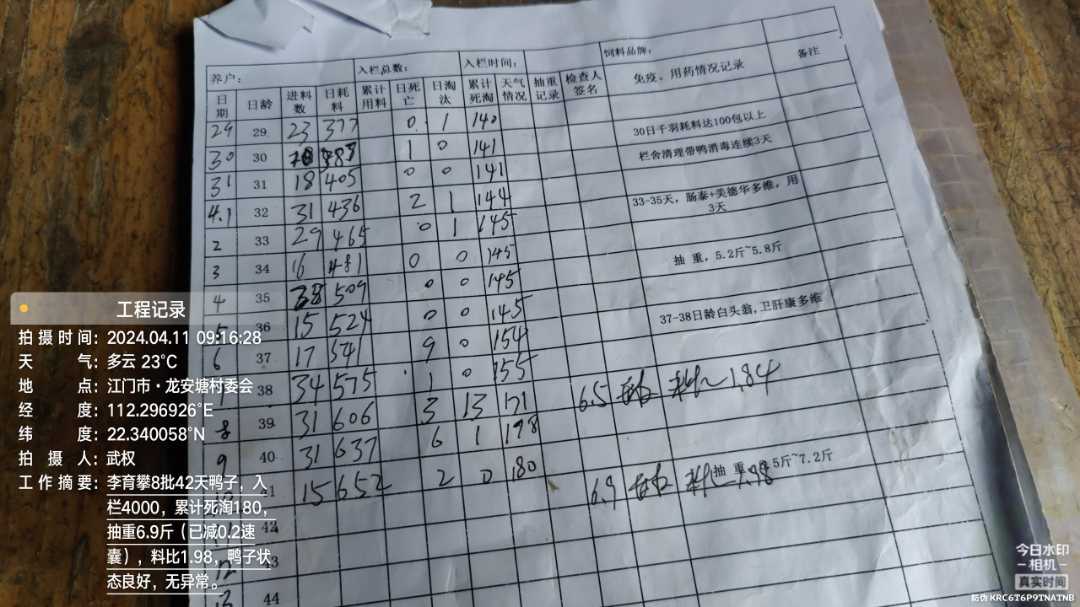 养户： 入栏总数： 入栏时间： 饲料品牌：
日期 日龄 进料数 日耗料 累计用料 日死亡 日淘汰 累计死淘 天气情况 抽重记录 检查人签名 免疫、用药情况记录 备注
29 29 23 377 0 1 140
30日千羽耗料达100包以上
30 30 1 0 141
栏舍清理带鸭消毒连续3天
31 31 18 405 0 0 141
4.1 32 31 436 2 1 144
33-35天，肠泰+美德华多维，用3天
2 33 29 465 0 1 145
3 34 16 481 0 0 145
抽 重，5.2斤~5.8斤
4 35 509 0 0 145
5 36 15 524 0 0 145
37-38日龄白头翁,卫肝康多维
6 37 17 541 9 0 154
38 34 575 1 0 155
8 39 31 606 3 13 171 6.5 1.84
9 40 31 637 6 1 178
抽 重 5斤~7.2斤
41 15 652 2 0 180 6.9 1.98
42
12 43
13 44
工程记录
拍 摄 时 间： 2024.04.11 09:16:28
天 气： 多云 23°C
地 点： 江门市·龙安塘村委会
经 度： 112.296926°E
纬 度： 22.340058°N
拍 摄 人： 武权
工 作 摘 要： 李育攀8批42天鸭子，入
栏4000，累计死淘180，
抽重6.9斤（已减0.2速
囊），料比1.98，鸭子状
态良好，无异常。
今日水印
相机
真实时间
防伪 KRC6T6P9TNATNB